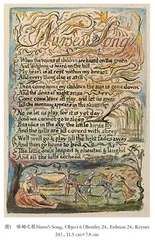 Nurse's Song
When the voices of children are heard on the green
And laughing is heard on the hill,
My heart is at rest within my breast
And every thing else is still
Then come home my children the sun is gone down
And the dews of night arise
Come come leave off play, and let us away
Till the morning appears in the skies
No no let us play, for it is yet day
And we cannot go to sleep
Besides in the sky, the little birds fly
And the hills are all coverd with sheep
Well well go & play till the light fades away
And then go home to bed
The little ones leaped & shouted & laugh'd
And all the hills ecchoed
图1 保姆之歌Nurse's Song, Object 6 (Bentley 24, Erdman 24, Keynes
24), 11.5 cm×7.8 cm